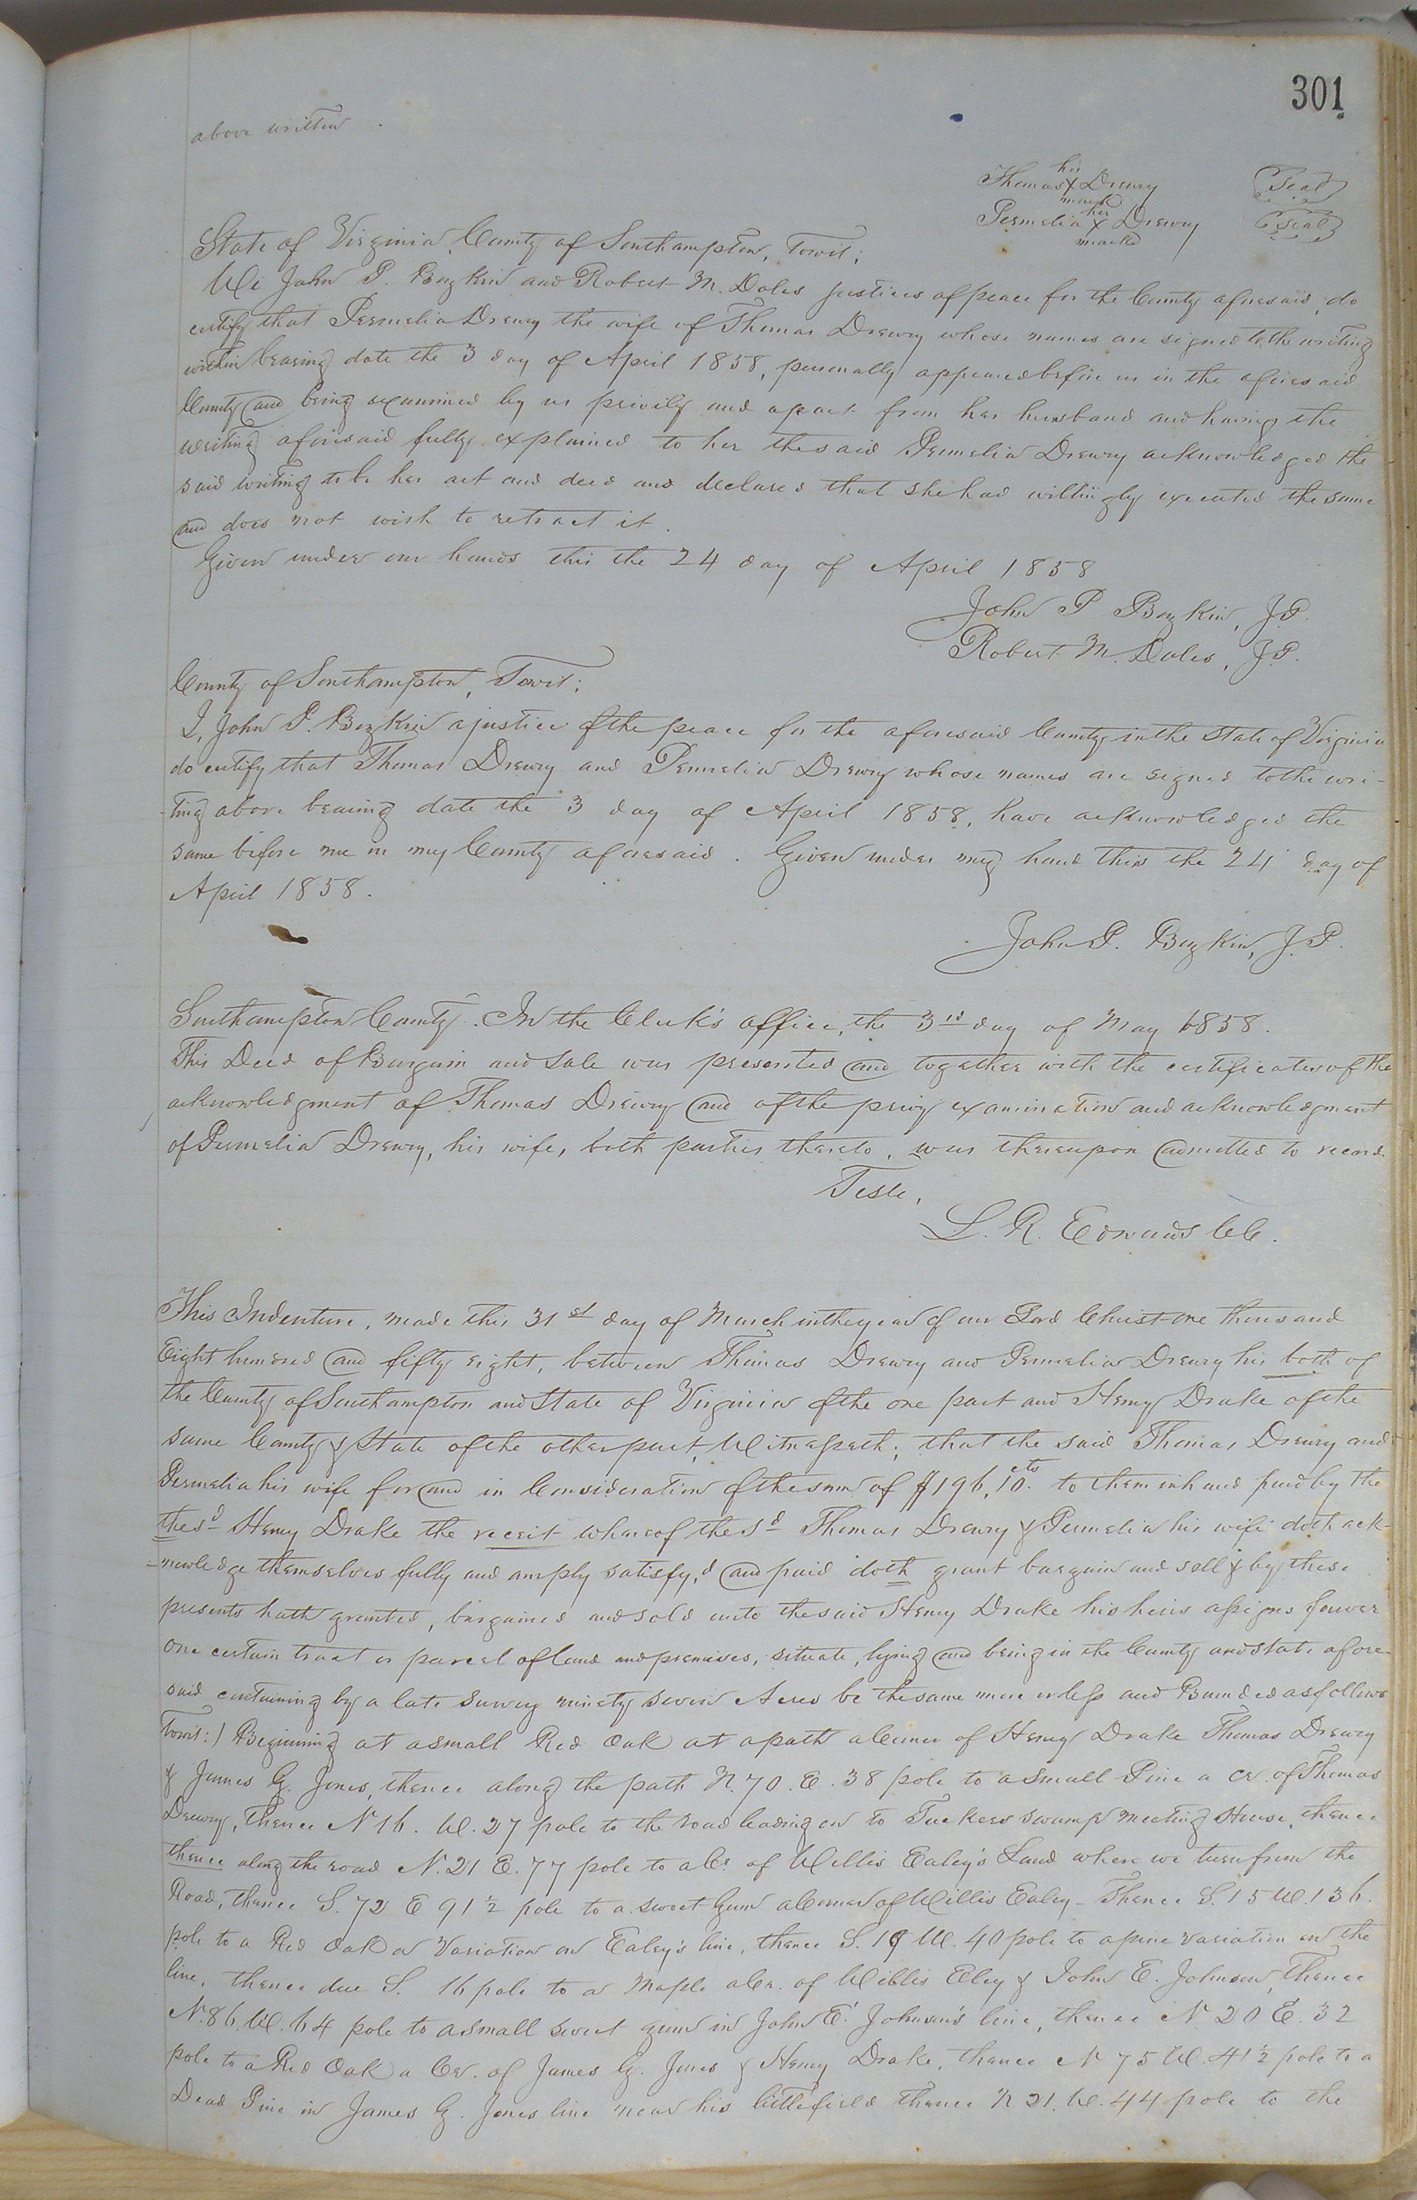 301
above written
his
Thomas X Drewry Seal
mark
her
Permelia X Drewry Seal
marke
State of Virginia County of Southampton, Towit;
We John P. Boykin and Robert M. Doles justices of peace for the County aforesaid, do
certify that Permelia Drewry the wife of Thomas Drewry whose names are signed to the writing
within bearing date the 3 day of April 1858, personally appeared before us in the aforesaid
County and being examined by us privily and apart from her husband and having the
writing aforesaid fully explained to her the said Permelia Drewry acknowledged the
said writing to be her act and deed and declared that she had willingly executed the same
and does not wish to retract it.
Given under our hands this the 24 day of April 1858
John P Boykin, J.P.
Robert M. Doles, J.P.
County of Southampton, Towit;
I, John P. Boykin a justice of the peace for the aforesaid County in the State of Virginia
do certify that Thomas Drewry and Permelia Drewry whose names are signed to the wri-
-ting above bearing date the 3 day of April 1858, have acknowledged the
same before me in my County aforesaid. Given under my hand this the 24 day of
April 1858.
John P. Boykin, J.P.
Southampton County. In the Clerk's office, the 3rd day of May 1858.
This Deed of Bargain and Sale was presented and together with the certificates of the
acknowledgment of Thomas Drewry and of the privy examination and acknowledgment
of Permelia Drewry, his wife, both parties thereto, was thereupon admitted to record.
Teste,
L. R. Edwards CC.
This Indenture, made this 31st day of March in the year of our Lord Christ one thousand
Eight hundred and fifty eight, between Thomas Drewry and Permelia Drewry his both of
the County of Southampton and State of Virginia of the one part and Henry Drake of the
same County & State of the other part, Witnesseth; that the said Thomas Drewry and
Permelia his wife for and in Consideration of the sum of $196,10cts. to them in hand paid by the
the sd Henry Drake the receit whareof the sd Thomas Drewry & Permelia his wife doth ack-
-nowledge themselves fully and amply satisfy,d and paid doth grant bargain and sell & by these
presents hath granted, bargained and sold unto the said Henry Drake his heirs assigns forever
one certain tract or parcel of land and premises, situate, lying and being in the County and State afore-
said containing by a late survey ninety seven Acres be the same more or less and Bounded as follows
Towit:) Beginning at a small Red Oak at a path a Corner of Henry Drake Thomas Drewry
& James G. Jones, thence along the path N. 70. E. 38 pole to a small Pine a Cr. of Thomas
Drewry, thence N 16. W. 27 pole to the road leading on to Tuckers swamp meeting House, thence
thence along the road N. 21 E. 77 pole to a Cr of Willis Ealey's Land where we turn from the
Road, thence S. 72 E 91½ pole to a sweet Gum a Corner of Willis Ealey - Thence S. 15 W 136.
pole to a Red Oak a Variation on Ealey's line, thence S. 19 W. 40 pole to a pine variation on the
line, thence due S. 16 pole to a Maple a Cr. of Willis Eley & John E. Johnson, Thence
N. 86. W. 64 pole to a small sweet gum in John E. Johnson's line, thence N 20 E. 32
pole to a Red Oak a Cr. of James G. Jones & Henry Drake, thence N 75 W. 41½ pole to a
Dead Pine in James G. Jones line near his little field thence N 21. W. 44 pole to the